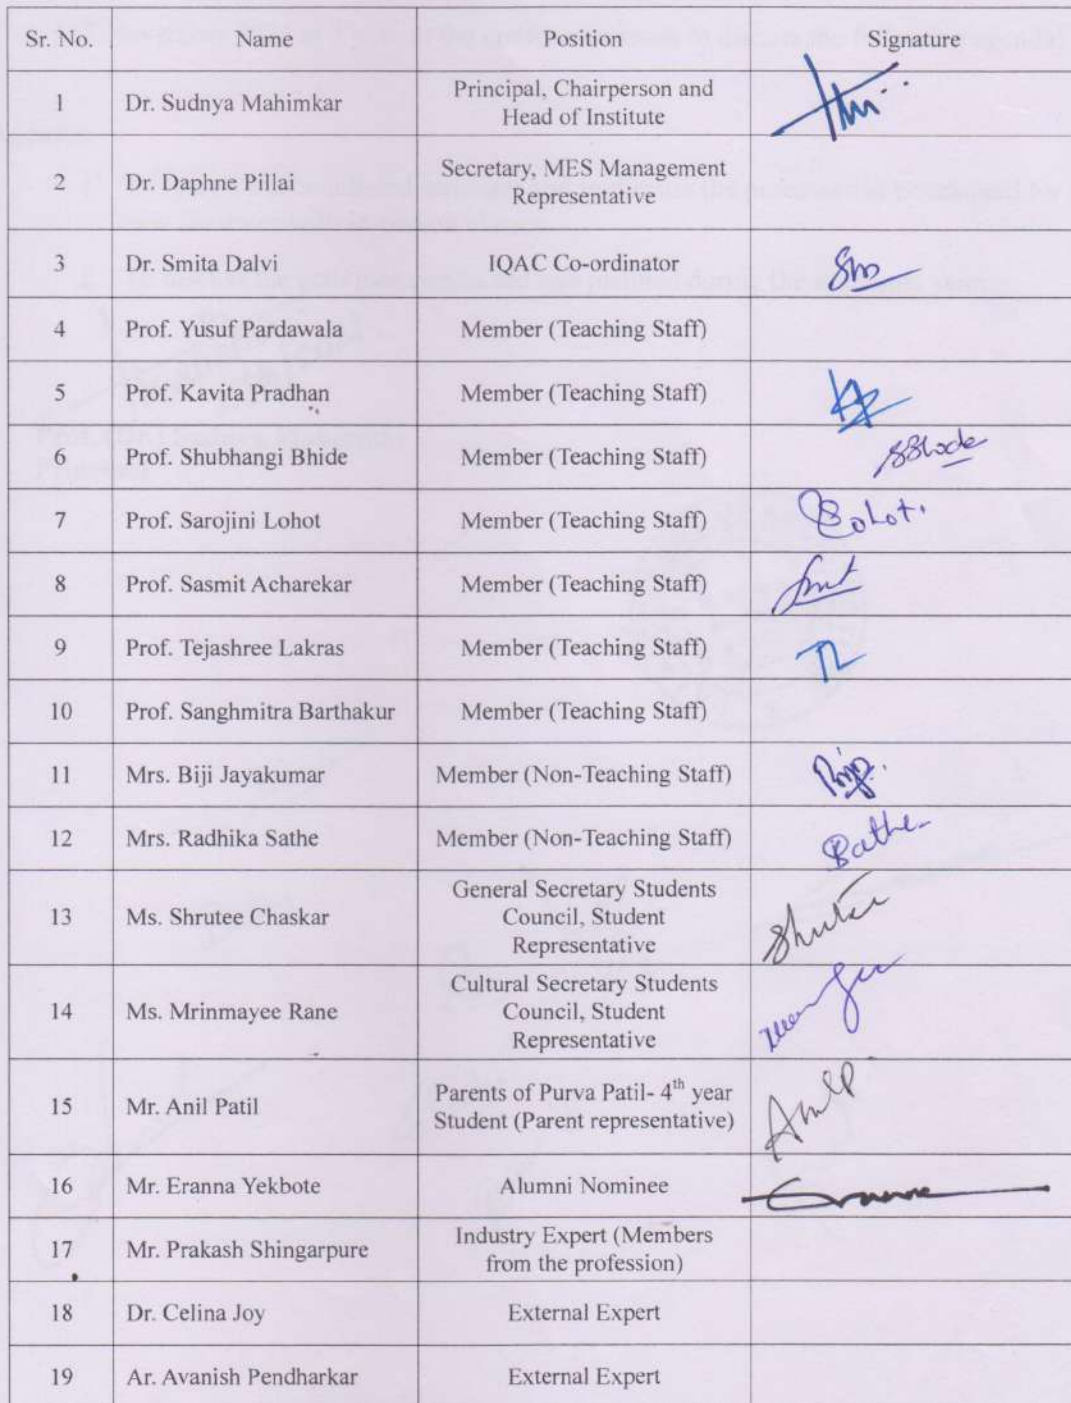 Sr. No. Name Position Signature
1 Dr. Sudnya Mahimkar Principal, Chairperson and
Head of Institute
2 Dr. Daphne Pillai Secretary, MES Management
Representative
3 Dr. Smita Dalvi IQAC Co-ordinator
4 Prof. Yusuf Pardawala Member (Teaching Staff)
5 Prof. Kavita Pradhan Member (Teaching Staff)
6 Prof. Shubhangi Bhide Member (Teaching Staff)
7 Prof. Sarojini Lohot Member (Teaching Staff)
8 Prof. Sasmit Acharekar Member (Teaching Staff)
9 Prof. Tejashree Lakras Member (Teaching Staff) TL
10 Prof. Sanghmitra Barthakur Member (Teaching Staff)
11 Mrs. Biji Jayakumar Member (Non-Teaching Staff)
12 Mrs. Radhika Sathe Member (Non-Teaching Staff)
General Secretary Students
13 Ms. Shrutee Chaskar Council, Student
Representative
Cultural Secretary Students
14 Ms. Mrinmayee Rane Council, Student
Representative
15 Mr. Anil Patil Parents of Purva Patil- 4th year
Student (Parent representative)
16 Mr. Eranna Yekbote Alumni Nominee
17 Mr. Prakash Shingarpure Industry Expert (Members
from the profession)
18 Dr. Celina Joy External Expert
19 Ar. Avanish Pendharkar External Expert